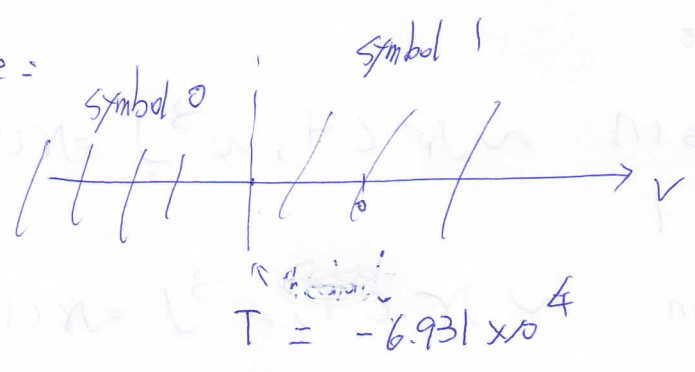 e =
symbol 1
symbol 0
0
r
T = -6.931 x10 4